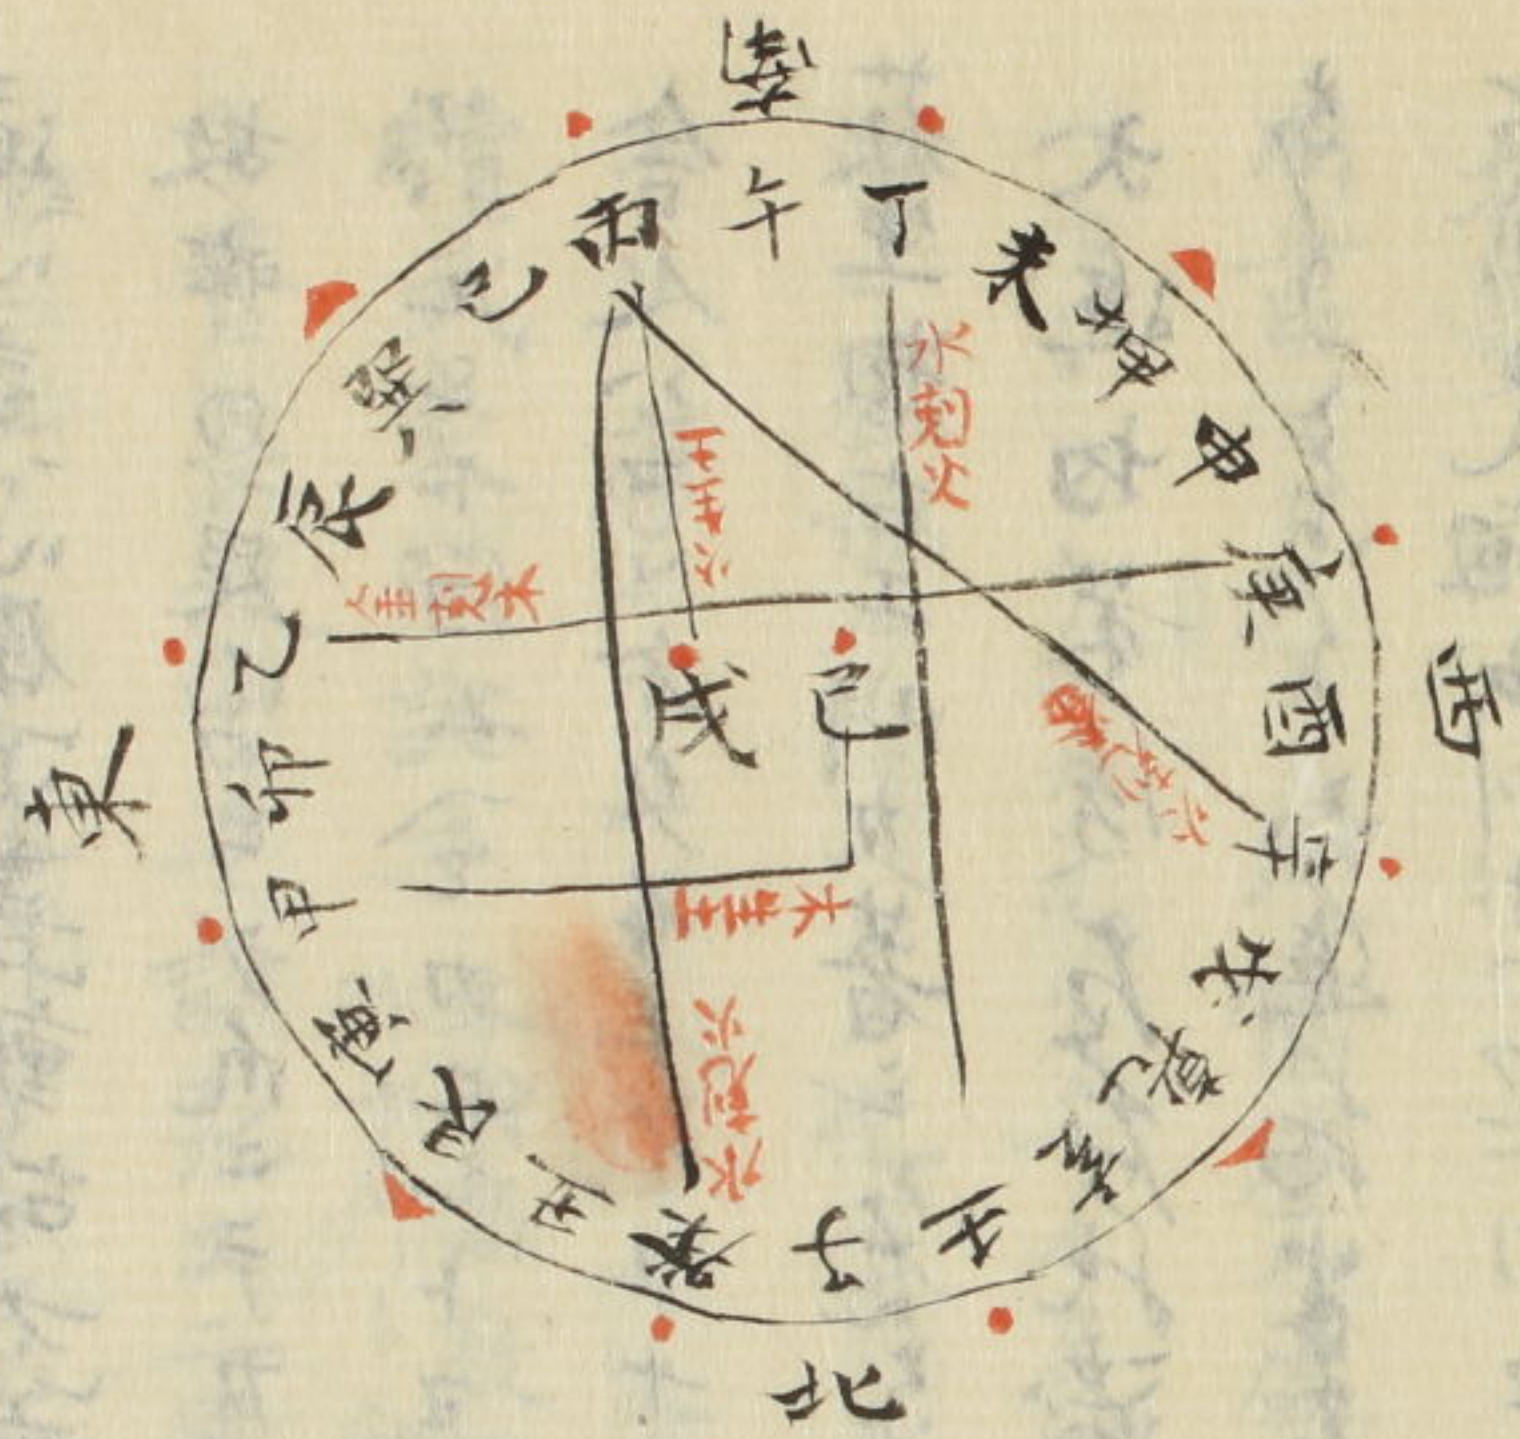 南
西
北
東
午
丁
未
坤
申
庚
酉
辛
戌
乾
亥
壬
子
癸
丑
艮
寅
甲
卯
乙
辰
巽
巳
丙
戊
己
水剋火
火生土
金剋木
火剋金
木生土
水剋火